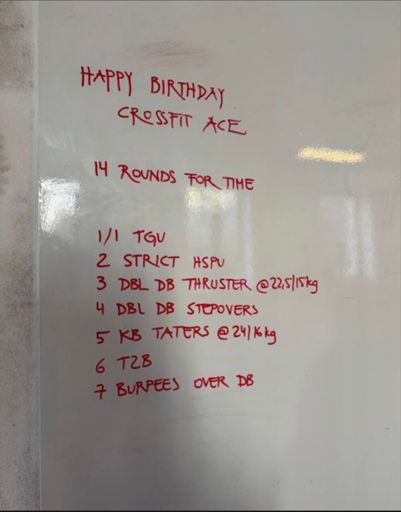 HAPPY BIRTHDAY
CROSSFIT ACE
14 ROUNDS FOR TIME
1/1 TGU
2 STRICT HSPU
3 DBL DB THRUSTER @22,5/15kg
4 DBL DB STEPOVERS
5 KB TATERS @24/16kg
6 T2B
7 BURPEES OVER DB